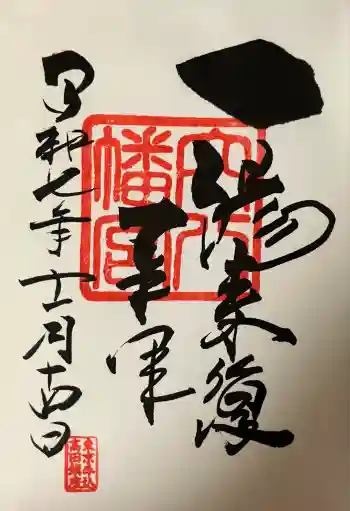 一陽来復
令和七年十一月十四日
穴八幡宮